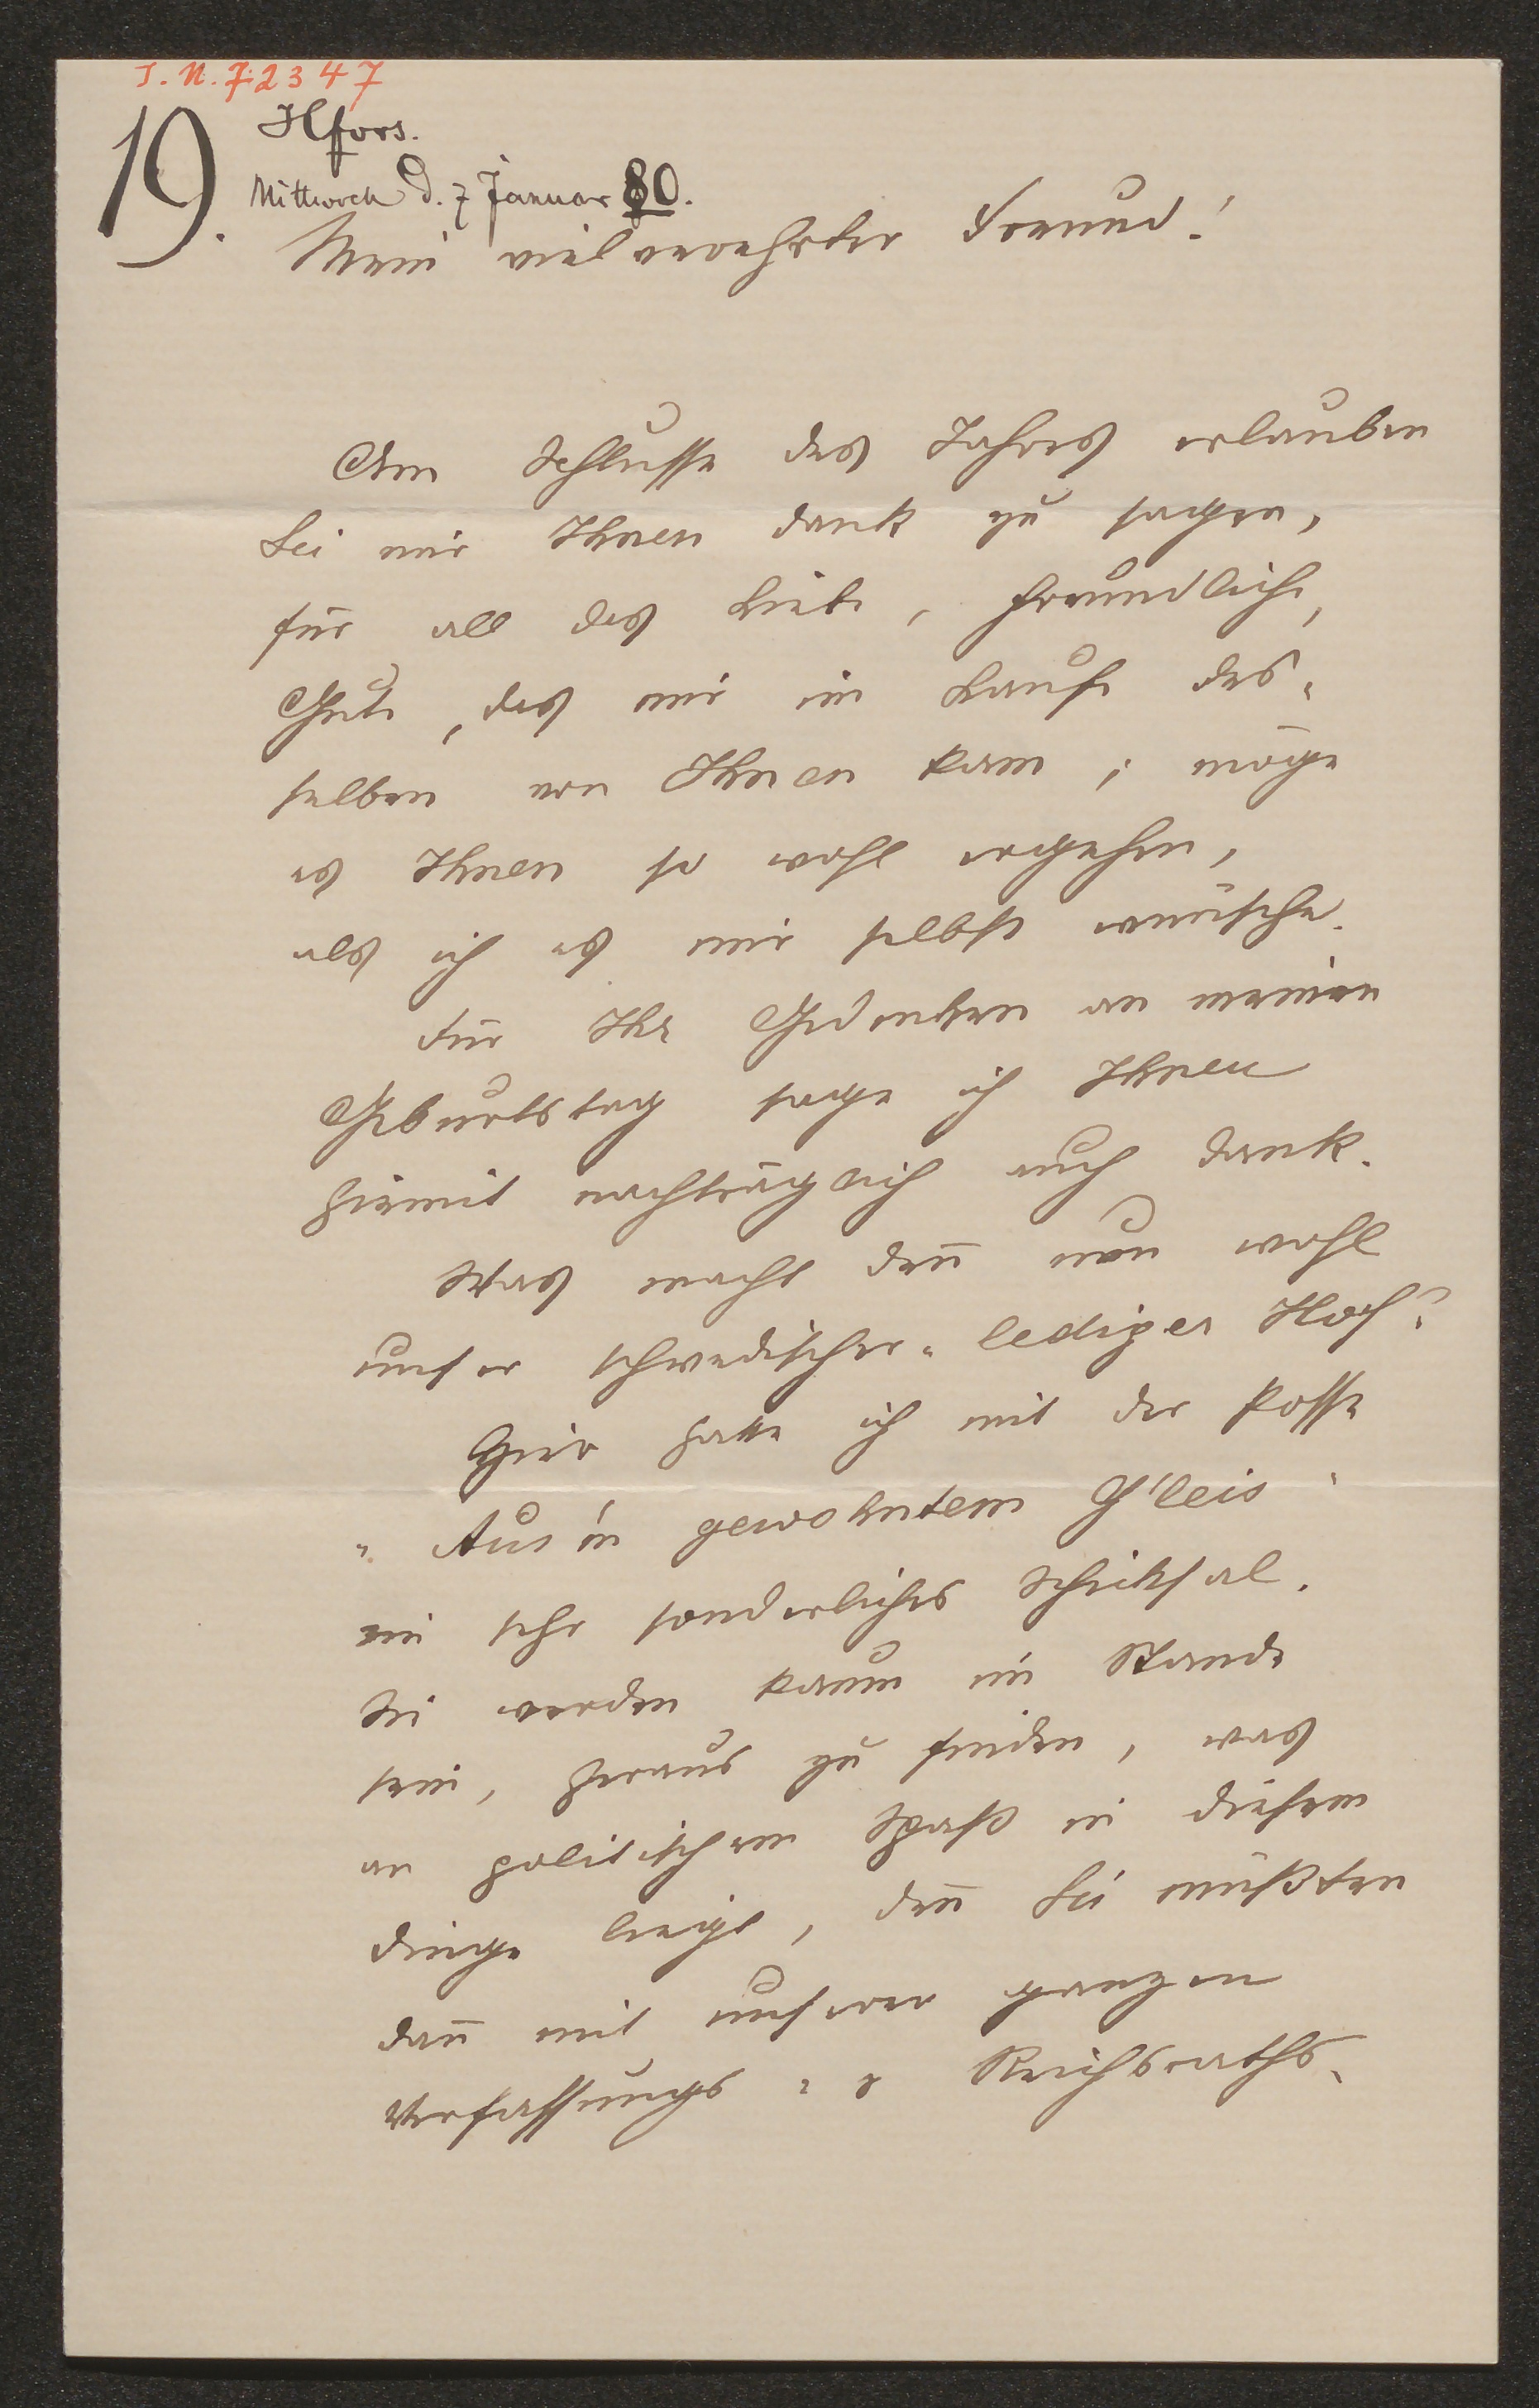 I. N. 72347
19.
Hfors.
Mittwoch d. 7 Januar 80.
Mein vielverehrter Freund!
Am Schlusse des Jahres erlauben
Sie mir Ihnen Dank zu sagen,
für all das Liebe, Freundliche,
Gute, das mir im Laufe des-
selben von Ihnen kam; möge
es Ihnen so wohl ergehen,
als ich es mir selbst wünsche.
Für Ihr Gedenken an meinen
Geburtstag sage ich Ihnen
hiemit nachträglich auch Dank.
Was macht den̅ nun wohl
unser schwedischer „lediger Hof?
Hier hatte ich mit der Posse
„Aus'm gewohntem G'leis"
ein sehr sonderliches Schicksal.
Sie werden kaum im Stande
sein, heraus zu finden, was
an politischem Spaß in diesem
Dinge liegt, den̅ Sie müßten
dan̅ mit unserer ganzen
Verfassungs- & Reichsraths-